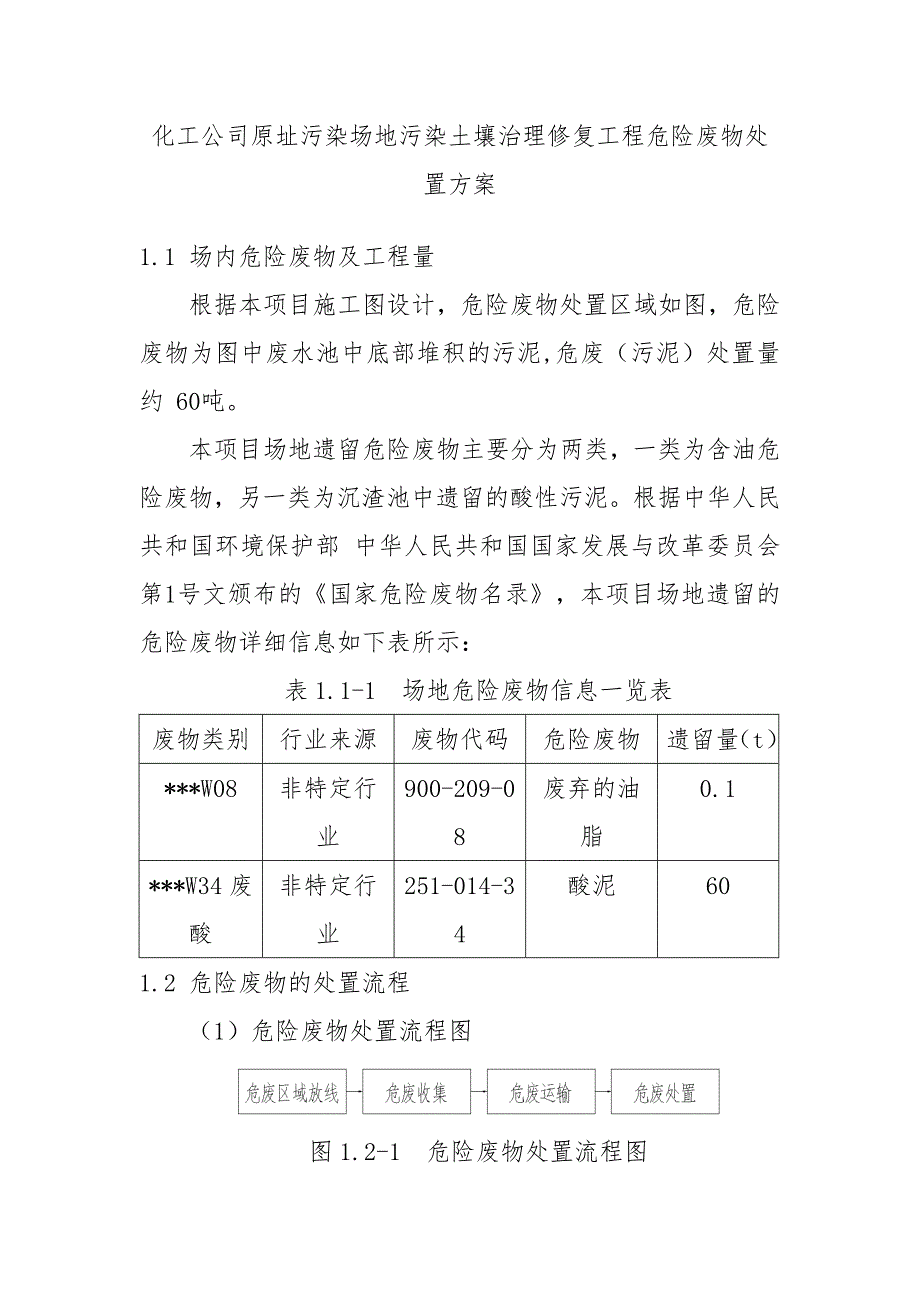 化工公司原址污染场地污染土壤治理修复工程危险废物处
置方案
1.1 场内危险废物及工程量
根据本项目施工图设计，危险废物处置区域如图，危险
废物为图中废水池中底部堆积的污泥,危废（污泥）处置量
约 60吨。
本项目场地遗留危险废物主要分为两类，一类为含油危
险废物，另一类为沉渣池中遗留的酸性污泥。根据中华人民
共和国环境保护部 中华人民共和国国家发展与改革委员会
第1号文颁布的《国家危险废物名录》，本项目场地遗留的
危险废物详细信息如下表所示：
表1.1-1 场地危险废物信息一览表
废物类别 行业来源 废物代码 危险废物 遗留量(t)
***W08 非特定行 900-209-0 废弃的油 0.1
业 8 脂
***W34废 非特定行 251-014-3 酸泥 60
酸 业 4
1.2 危险废物的处置流程
（1）危险废物处置流程图
危废区域放线 危废收集 危废运输 危废处置
图1.2-1 危险废物处置流程图